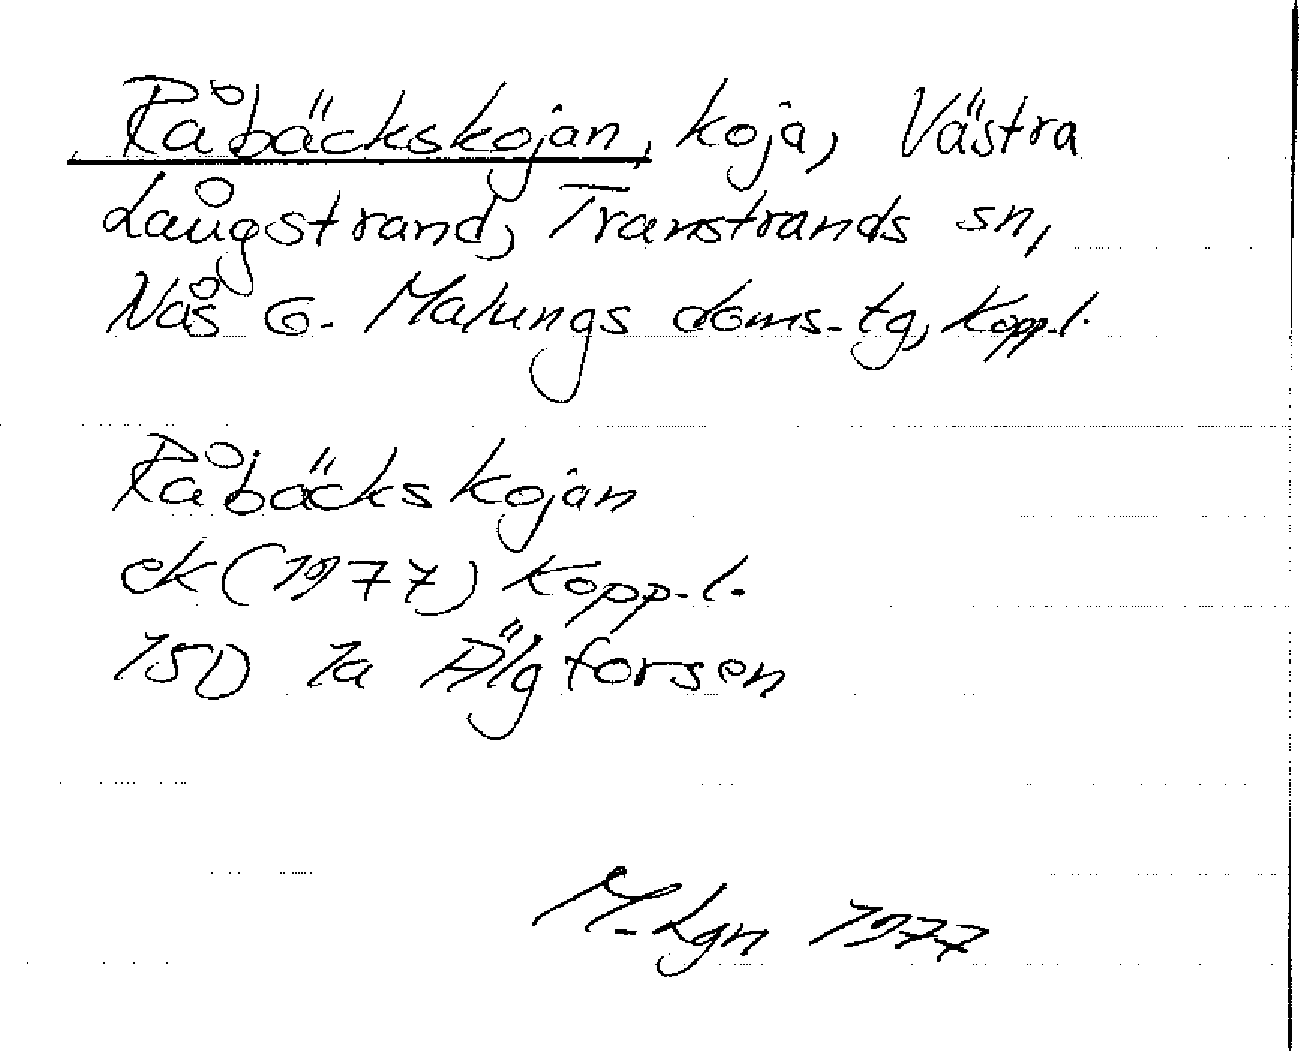 Råbäckskojan, koja, Västra
Långstrand, Transtrands sn,
Nås o. Malungs doms. tg, Kopp.l.
Råbäckskojan
ek (1977) Kopp. l.
15D 1a Älgforsen
M. Lgn 1977